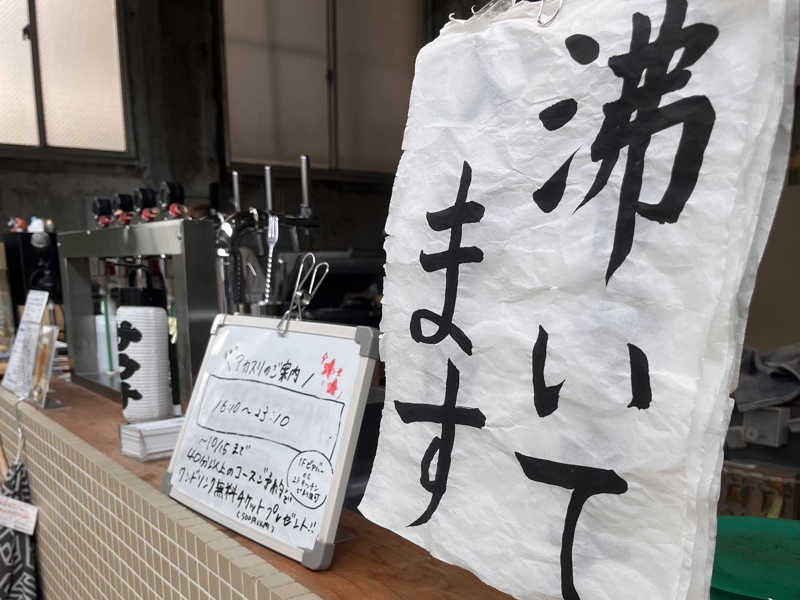 沸いて
ます
アカスリのご案内
16:10〜23:10
〜10/15まで
40分以上のコースご予約で
ワンドリンク無料チケットプレゼント!!
サウナ